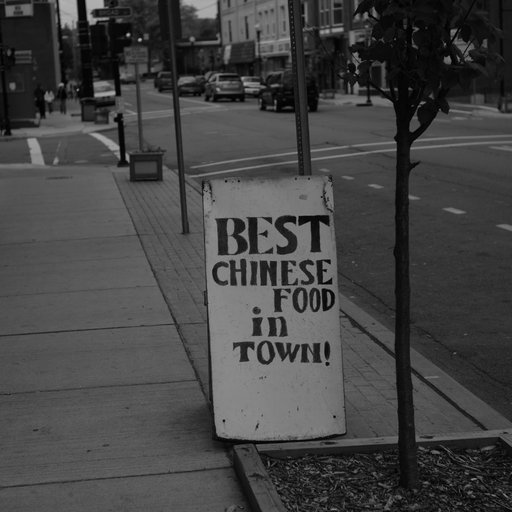 BEST
CHINESE
FOOD
in
TOWN!